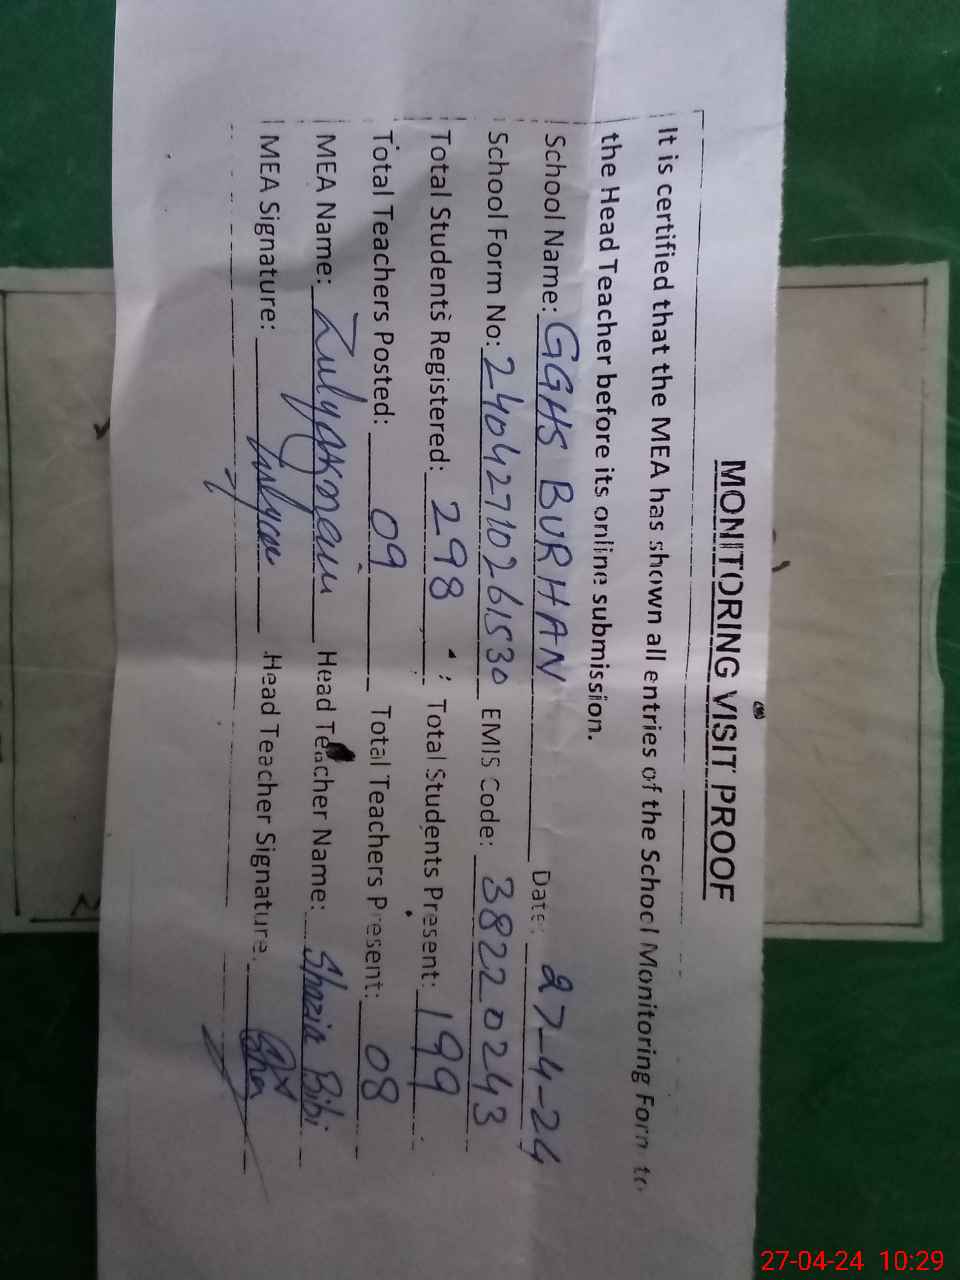 MONITORING VISIT PROOF
It is certified that the MEA has shown all entries of the School Monitoring Form to
the Head Teacher before its online submission.
School Name: GGHS BURHAN Date: 27-4-24
School Form No: 24042710261530 EMIS Code: 38220243
Total Students Registered: 298 Total Students Present: 199
Total Teachers Posted: 09 Total Teachers Present: 08
MEA Name: Head Teacher Name: Shazia Bibi
MEA Signature: Head Teacher Signature:
27-04-24 10:29